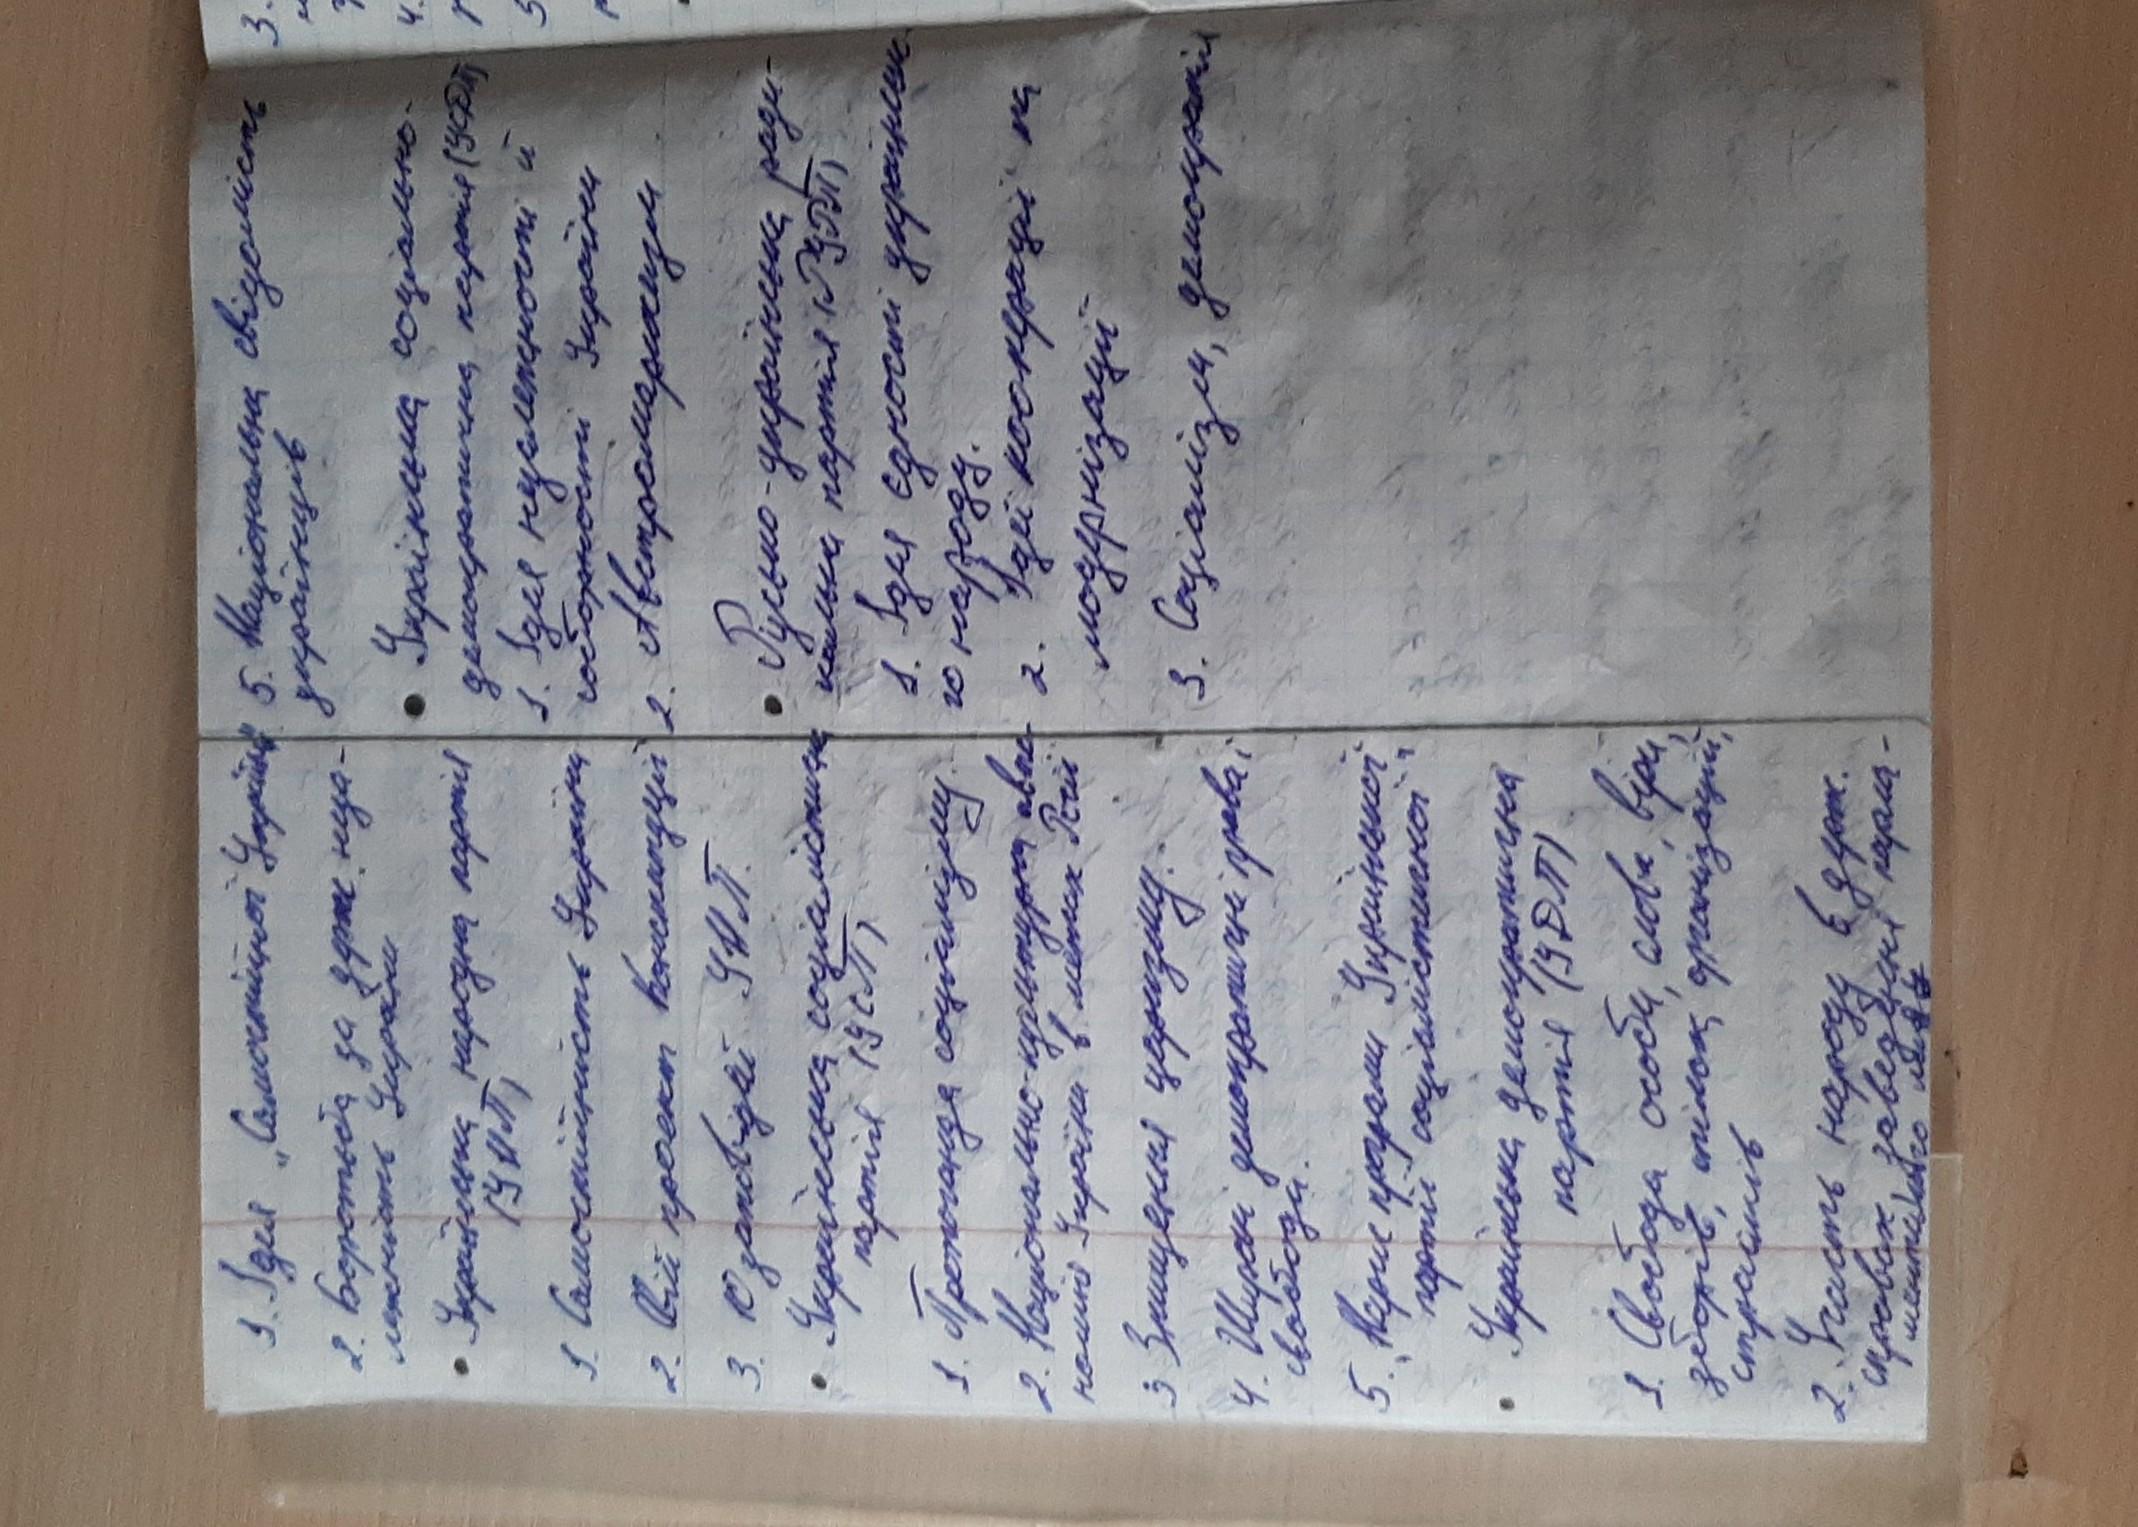 1. Ідея „Самостійної України"
2. Боротьба за держ. неза-
лежність України
• Українська народна партія
(УНП)
1. Самостійність України
2. Свій проект Конституції
3. 10 заповідей УНП.
• Українська соціалістична
партія (УСП)
1. Пропаганда соціалізму.
2. Національно-культурна авто-
номія України в межах Росії
3 Знищення царизму.
4. Широкі демократичні права і
свободи.
5. „Нарис програми Української
партії соціалістичної"
• Українська демократична
партія (УДП)
1. Свобода особи, слова, віри,
зборів, спілок, організацій,
страйків
2. Участь народу в держ.
справах заведення парла-
ментського
5. Національна свідомість
українців
• Українська соціально-
демократична партія (УСДП)
1. Ідея незалежності й
соборності України
2. Австромарксизм
• Русько-українська ради-
кальна партія (РУРП)
1. Ідея єдності українськ.
го народу.
2. Ідеї кооперації та
модернізації
3. Соціалізм, демократія
3.
4.
5